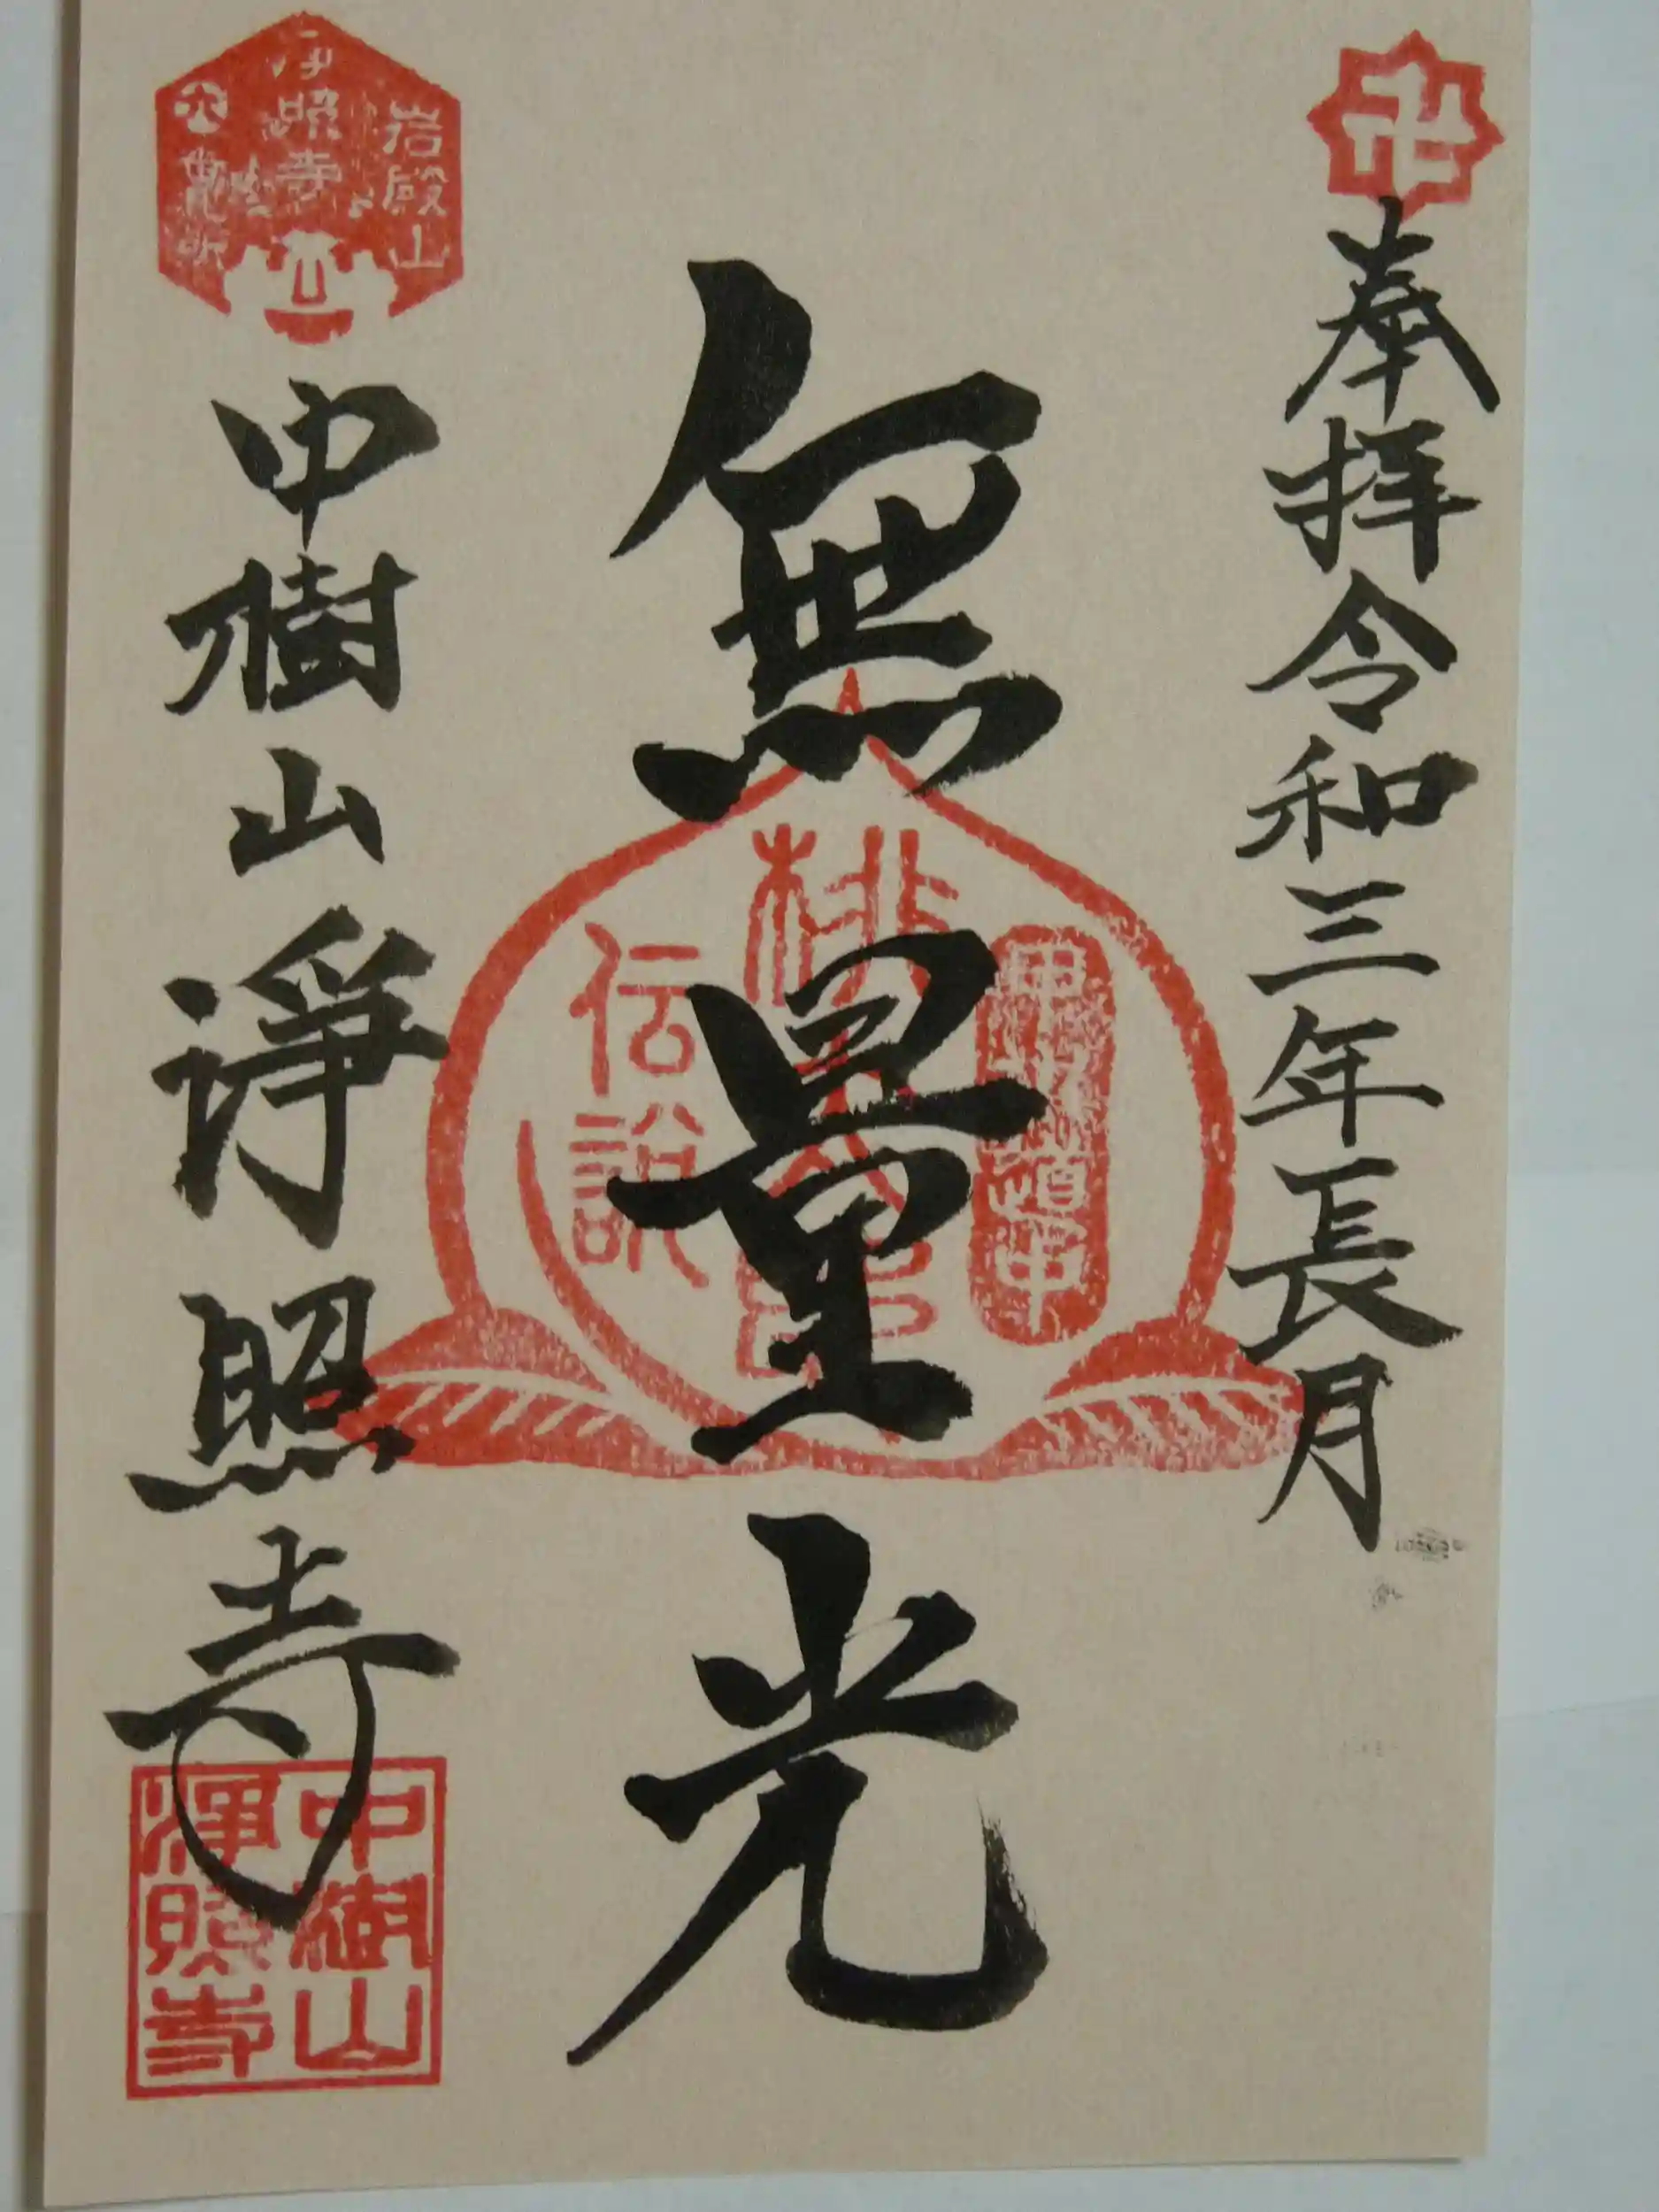 奉拝令和三年長月
無量光
甲州道中
桃太郎
伝説
中樹山淨照寺
岩殿山
淨照寺
中樹山
淨照寺